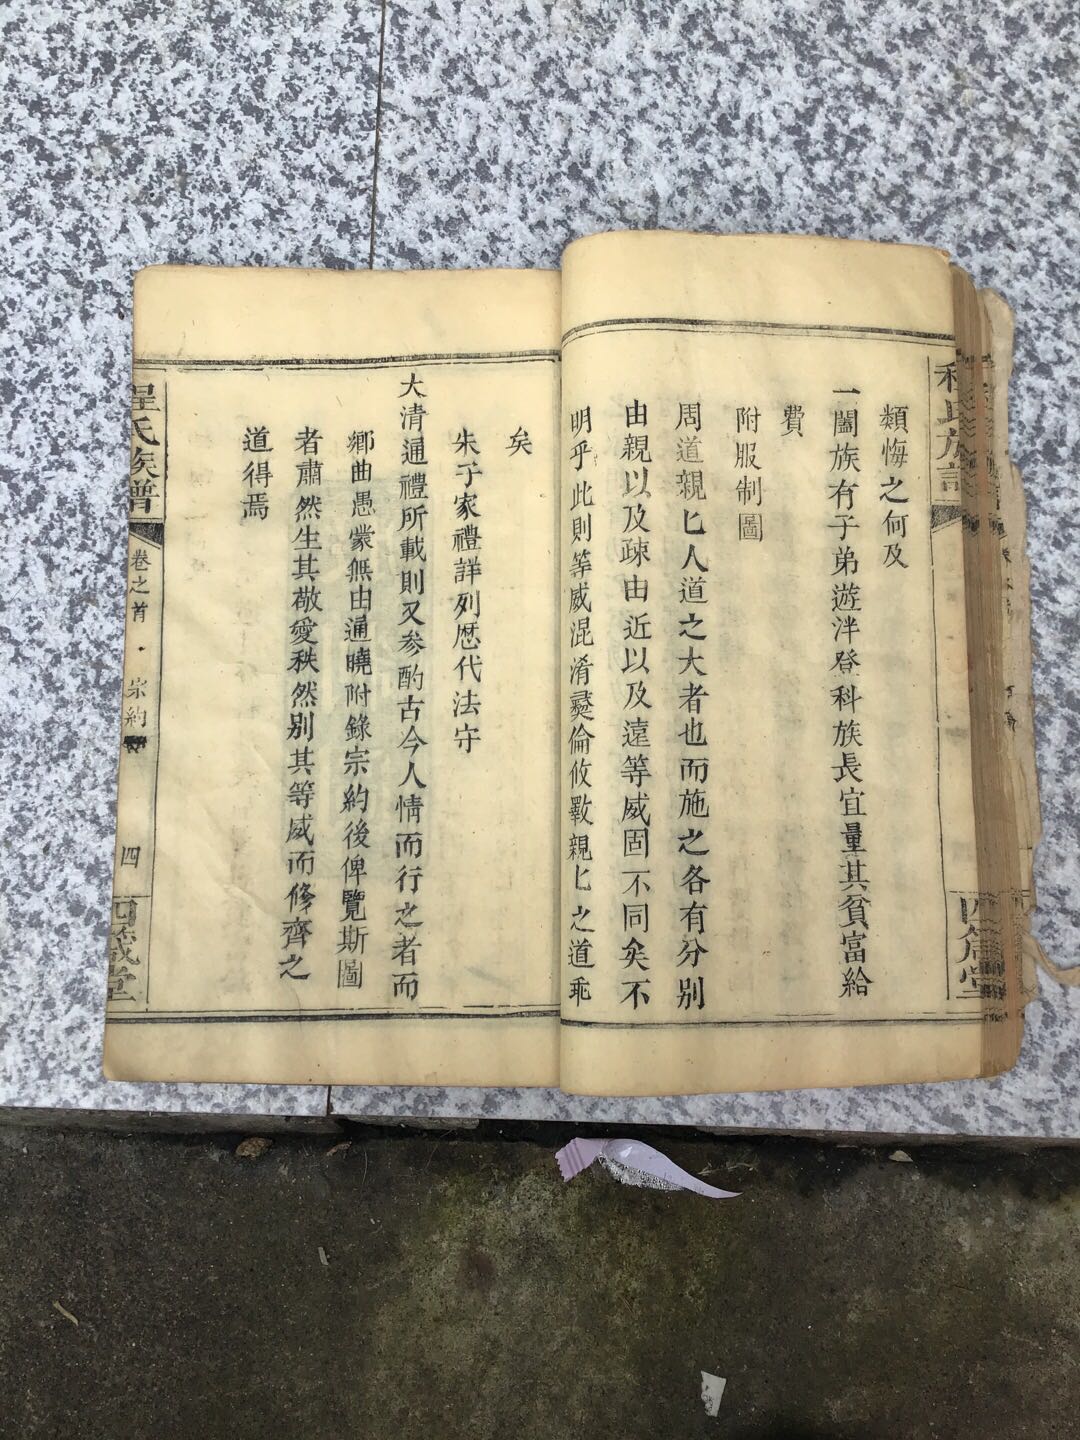 程氏族譜
四箴堂
類悔之何及
一闔族有子弟遊泮登科族長宜量其貧富給
費
附服制圖
周道親匕人道之大者也而施之各有分別
由親以及疎由近以及遠等威固不同矣不
明乎此則等威混淆彛倫攸斁親匕之道乖
矣
朱子家禮詳列歷代法守
大清通禮所載則又參酌古今人情而行之者而
鄉曲愚蒙無由通曉附錄宗約後俾覽斯圖
者肅然生其敬愛秩然別其等威而修齊之
道得焉
程氏族譜
卷之首
宗約
四
四箴堂